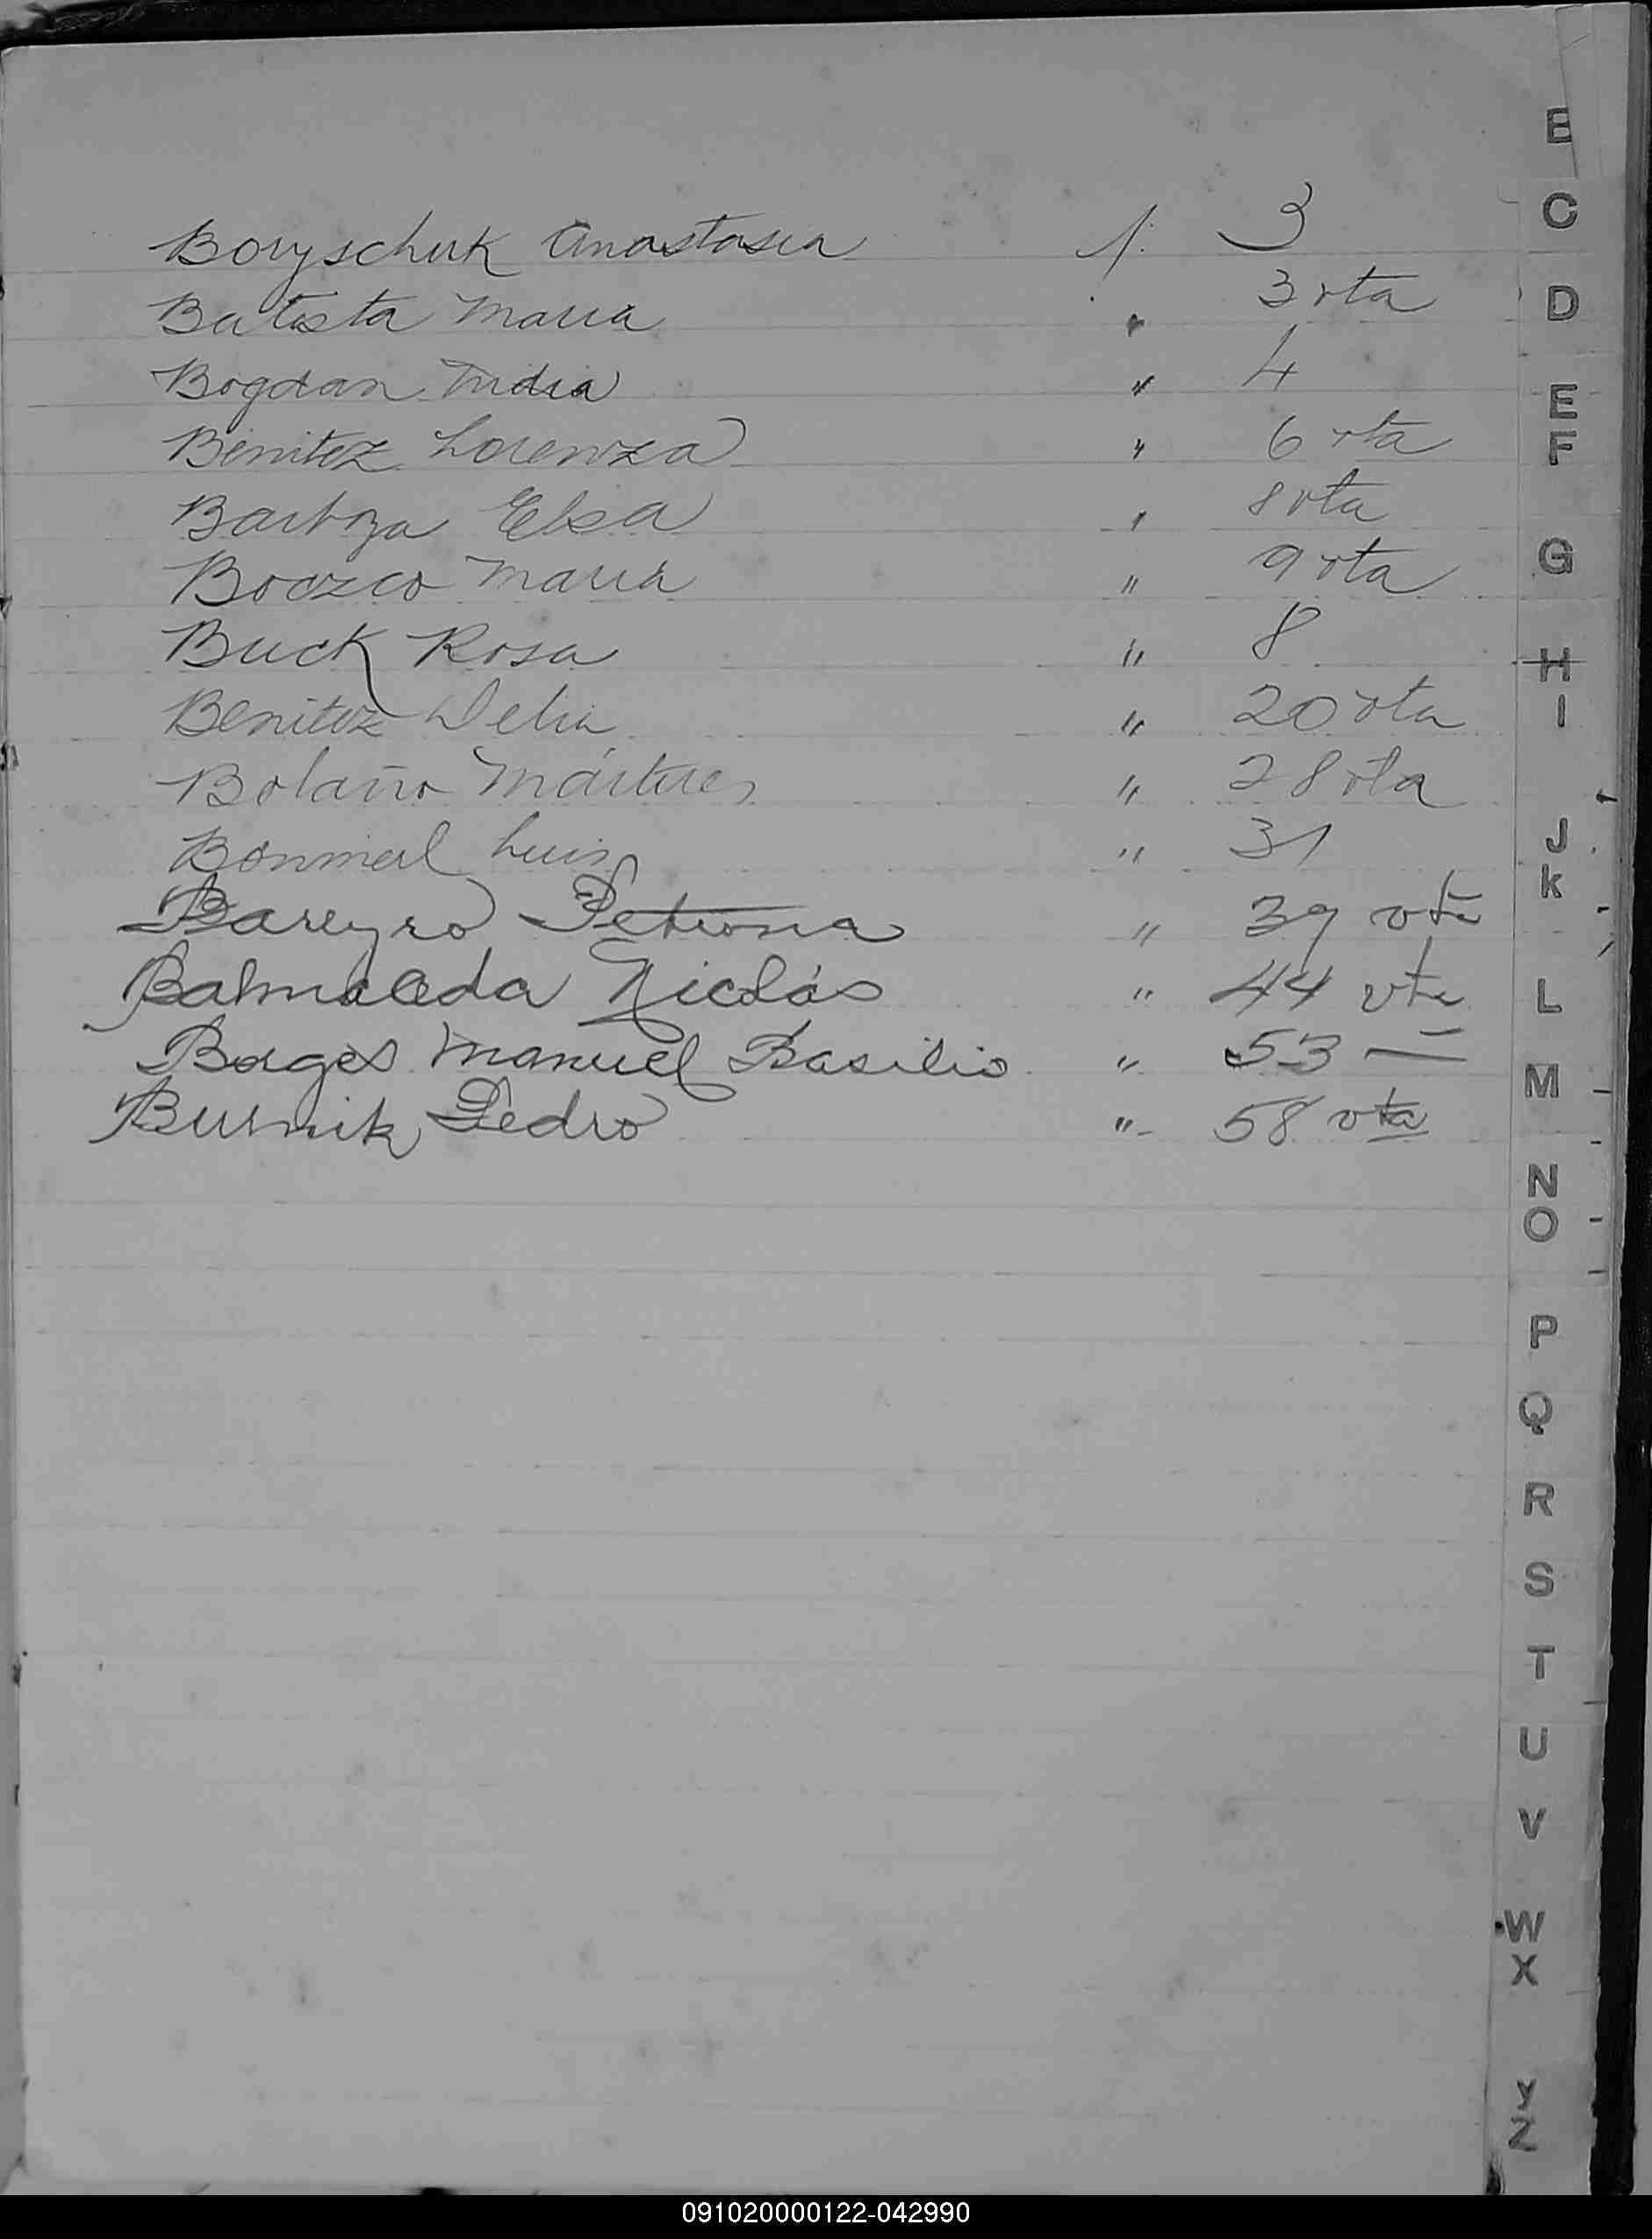 Boryschuk Anastasia f. 3
Batista Maria " 3 vta
Bogdan Nidia " 4
Benitez Lorenza " 6 vta
Barboza Elsa " 8 vta
Boczco Maria " 9 vta
Buck Rosa " 8
Benitez Delia " 20 vta
Bolaño Mártires " 28 vta
Luis " 31
Bareyro Petrona " 39 vta
Balmaceda Nicolás " 44 vta
Borges Manuel Basilio " 53 —
Busnik Pedro " 58 vta
B
C
D
E
F
G
H
I
J
K
L
M
N
O
P
Q
R
S
T
U
V
W
X
Y
Z
091020000122-042990